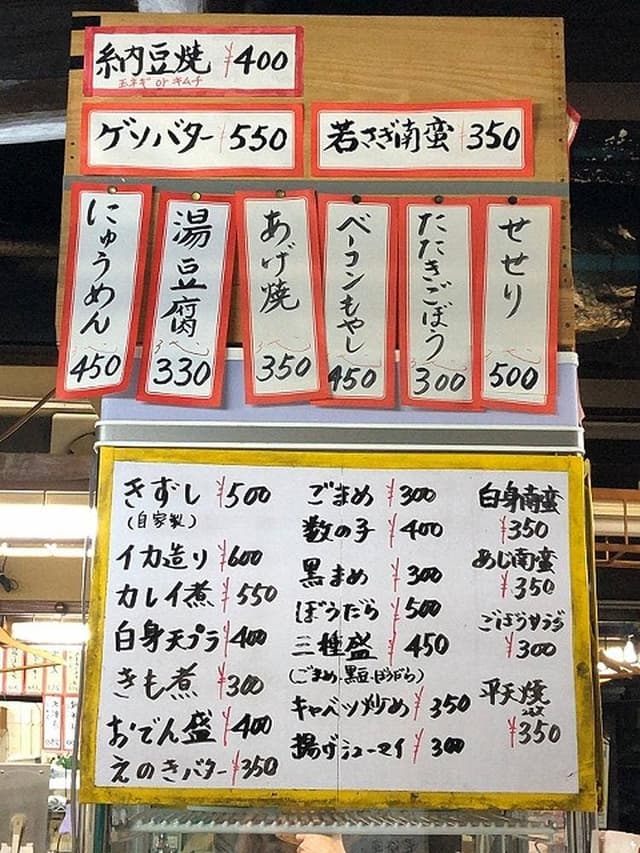 納豆焼 ¥400
玉ネギ or キムチ
ゲソバター ¥550
若さぎ南蛮 ¥350
にゅうめん 450
湯豆腐 330
あげ焼 350
ベーコンもやし 450
たたきごぼう 300
せせり 500
きずし ¥500
(自家製)
イカ造り ¥600
カレイ煮 ¥550
白身天プラ ¥400
きも煮 ¥300
おでん盛 ¥400
えのきバター ¥350
ごまめ ¥300
数の子 ¥400
黒まめ ¥300
ぼうだら ¥500
三種盛 ¥450
(ごまめ.黒豆.ぼうだら)
キャベツ炒め ¥350
揚げシューマイ ¥300
白身南蛮
¥350
あじ南蛮
¥350
ごぼうサラダ
¥300
平天焼
¥350